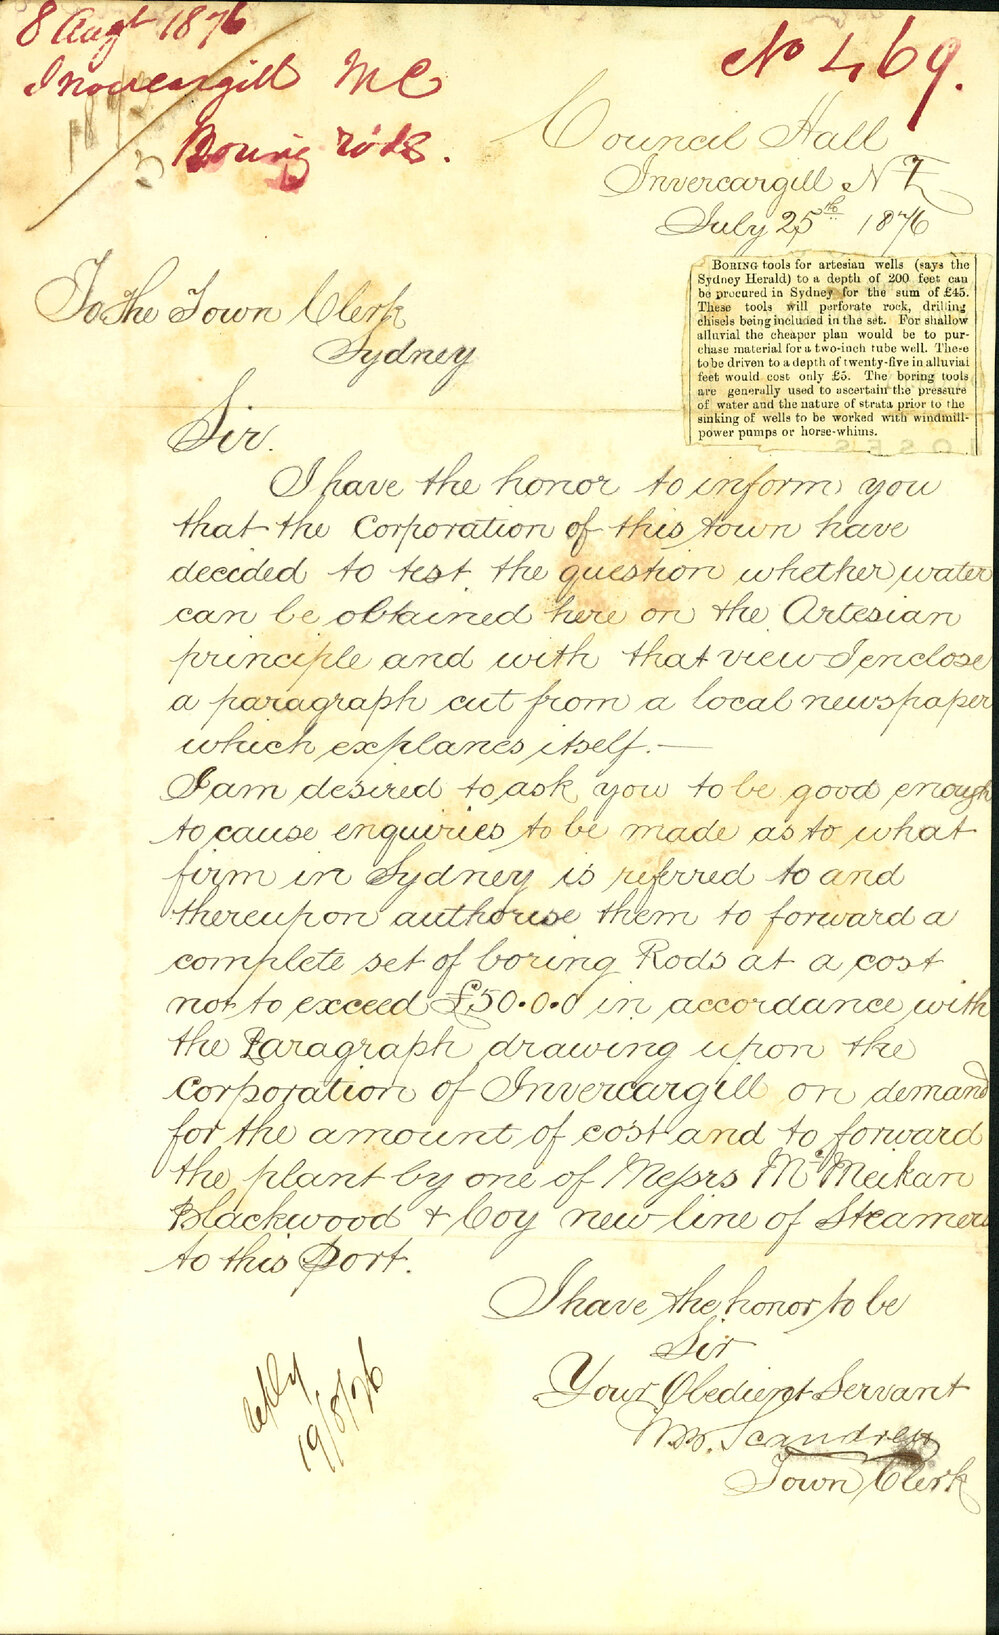 8 Augt 1876
Invercargill MC
Boring rods.
No 469.
Council Hall
Invercargill NZ
July 25th 1876
To the Town Clerk
Sydney
BORING tools for artesian wells (says the
Sydney Herald) to a depth of 200 feet can
be procured in Sydney for the sum of £45.
These tools will perforate rock, drilling
chisels being included in the set. For shallow
alluvial the cheaper plan would be to pur-
chase material for a two-inch tube well. These
to be driven to a depth of twenty-five in alluvial
feet would cost only £5. The boring tools
are generally used to ascertain the pressure
of water and the nature of strata prior to the
sinking of wells to be worked with windmill-
power pumps or horse-whims.
Sir.
I have the honor to inform you
that the Corporation of this town have
decided to test the question whether water
can be obtained here on the Artesian
principle and with that view I enclose
a paragraph cut from a local newspaper
which explanes itself.—
I am desired to ask you to be good enough
to cause enquiries to be made as to what
firm in Sydney is referred to and
thereupon authorise them to forward a
complete set of boring Rods at a cost
not to exceed £50.0.0 in accordance with
the Paragraph drawing upon the
Corporation of Invercargill on demand
for the amount of cost and to forward
the plant by one of Messrs McMeikan
Blackwood & Coy new line of Steamers
to this Port.
I have the honor to be
Sir
Your Obedient Servant
Wm. Scandrett
Town Clerk
reply
19/8/76